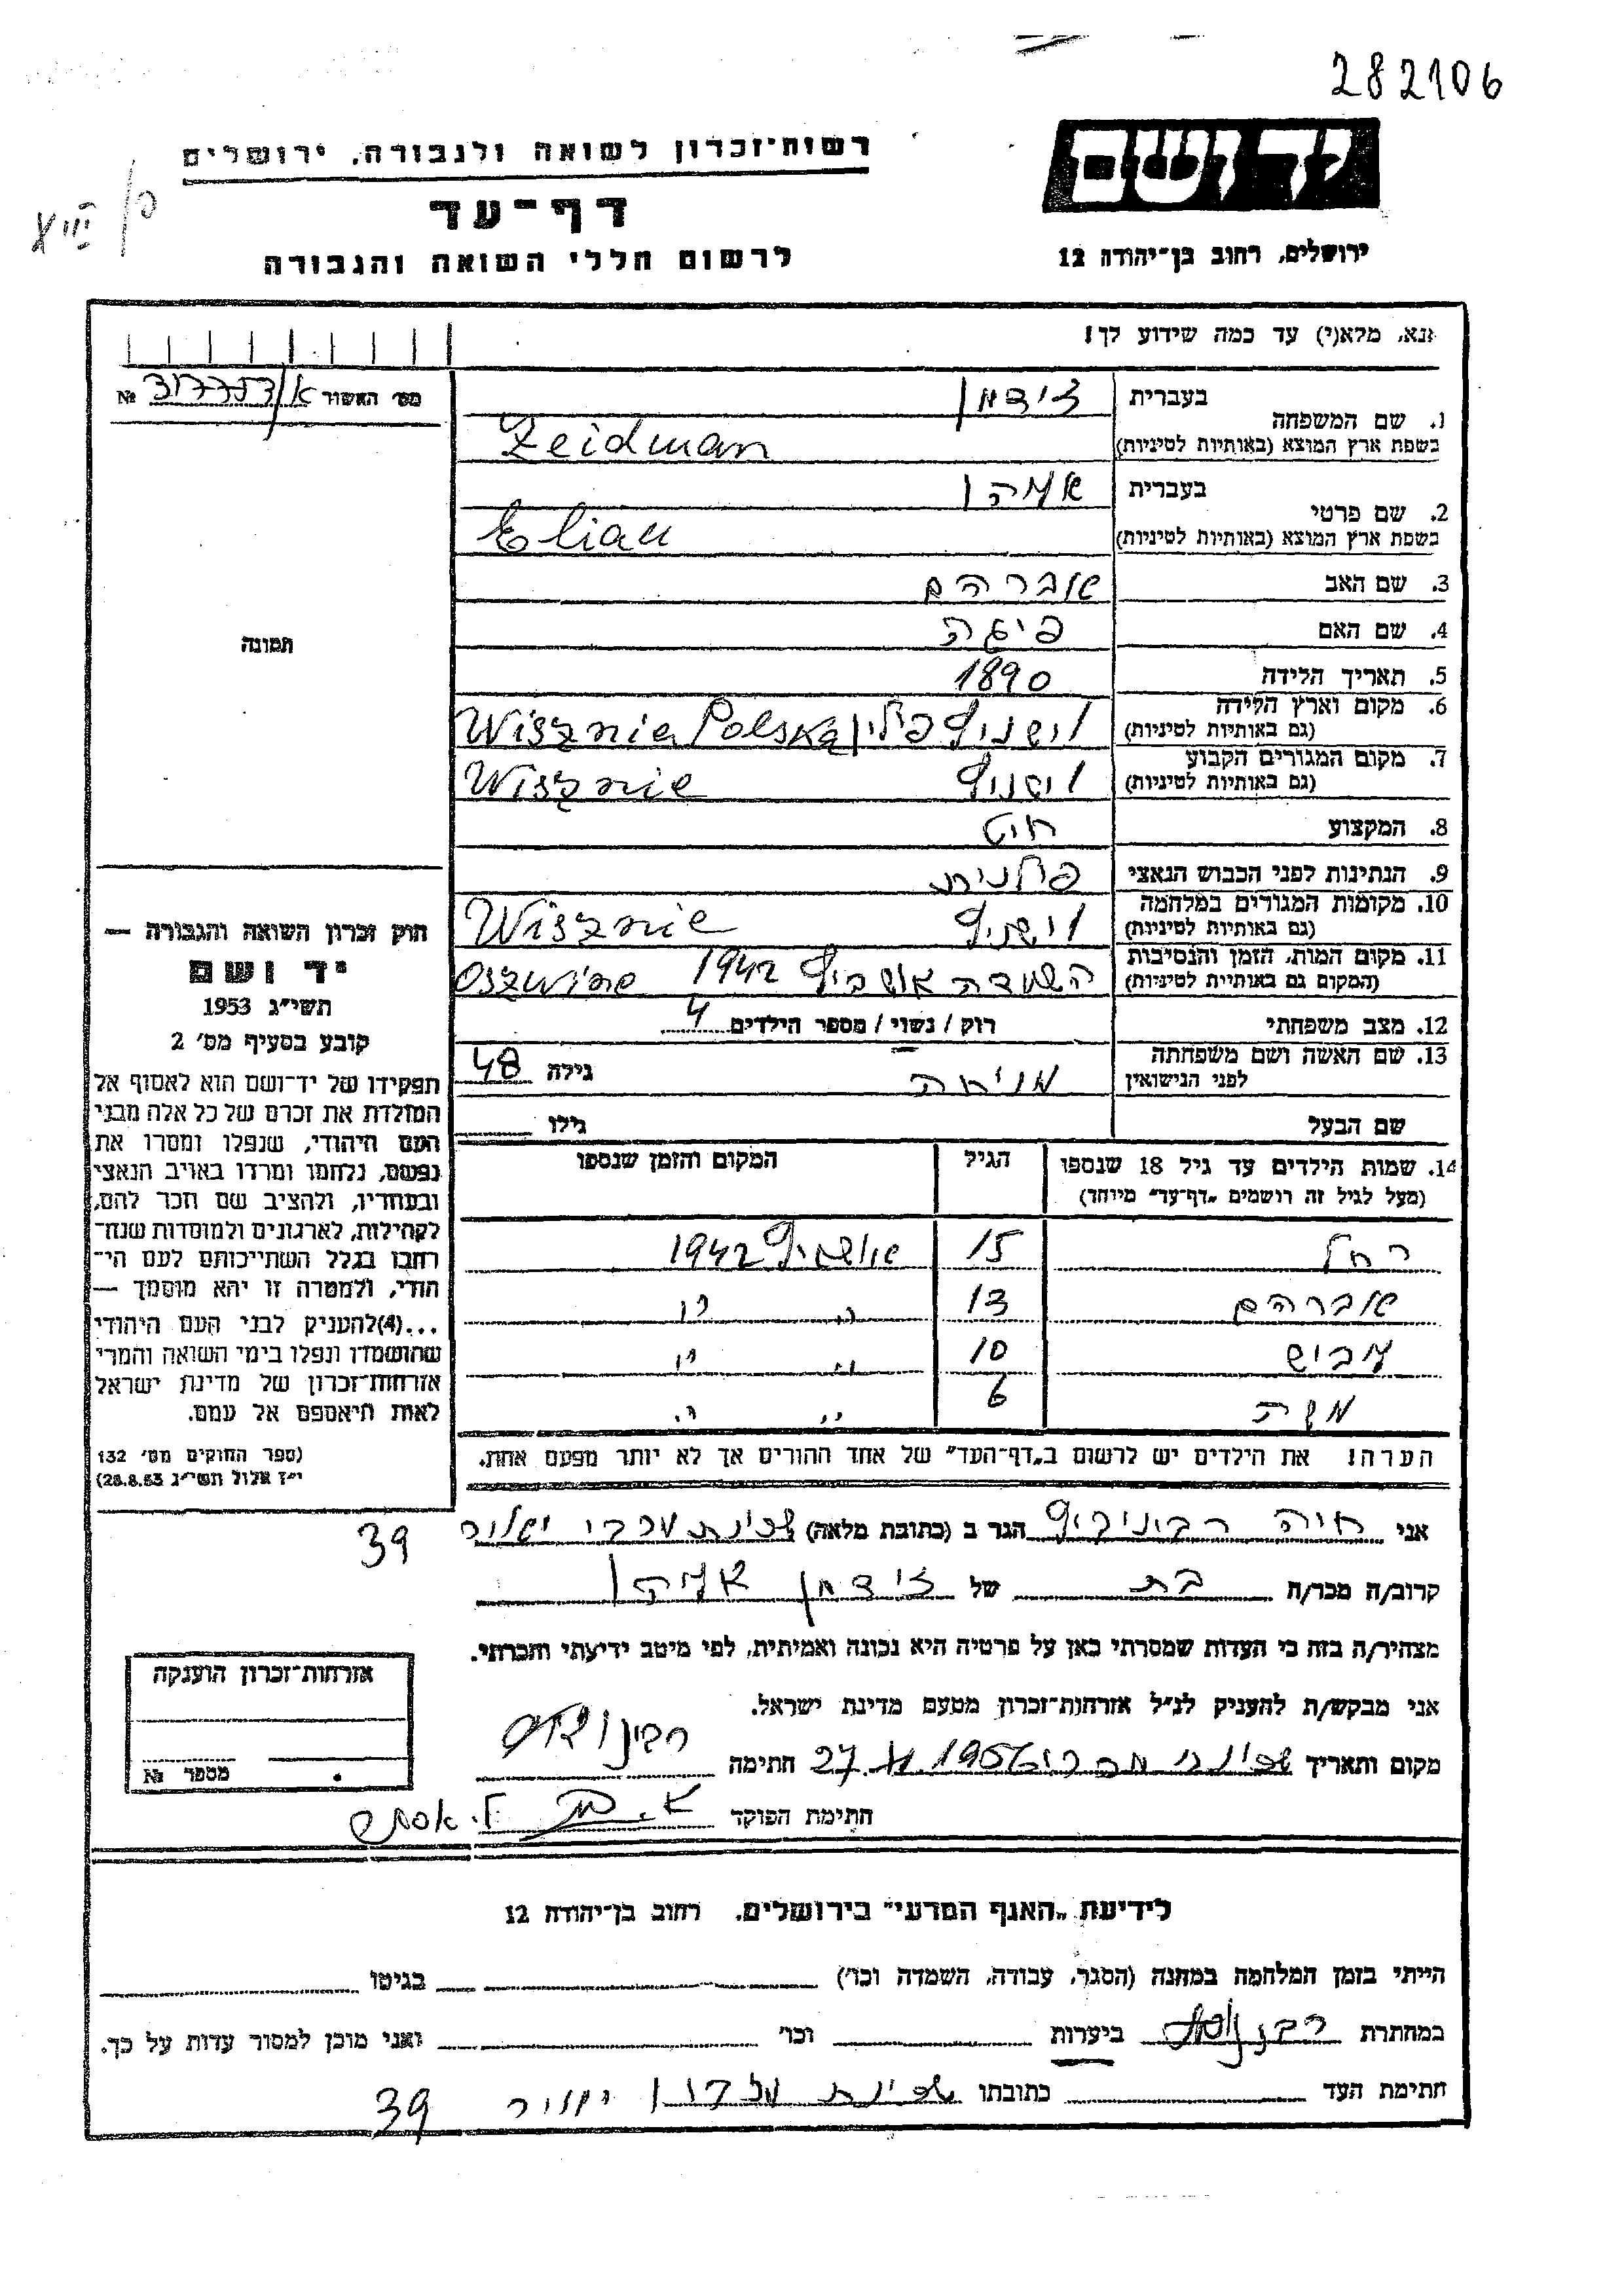 282106
יד ושם
רשות־זכרון לשואה ולגבורה, ירושלים
דף־עד
לרשום חללי השואה והגבורה
ירושלים, רחוב בן־יהודה 12
נא, מלא(י) עד כמה שידוע לך!
מס׳ האשור א/317757 №
1. שם המשפחה בעברית זידמן
בשפת ארץ המוצא (באותיות לטיניות) Zeidman
2. שם פרטי בעברית אליהו
בשפת ארץ המוצא (באותיות לטיניות) Eliau
3. שם האב אברהם
4. שם האם פיגה
5. תאריך הלידה 1890
6. מקום וארץ הלידה (גם באותיות לטיניות) וישניץ פולין Wisznie Polska
7. מקום המגורים הקבוע (גם באותיות לטיניות) וישניץ Wisznie
8. המקצוע חיט
9. הנתינות לפני הכבוש הנאצי פולנית
10. מקומות המגורים במלחמה (גם באותיות לטיניות) וישניץ Wisznie
11. מקום המות, הזמן והנסיבות (המקום גם באותיות לטיניות) השמדה אושביץ 1942
12. מצב משפחתי רוק / נשוי / מספר הילדים 4
13. שם האשה ושם משפחתה לפני הנישואין מניחה גילה 48
שם הבעל גילו
14. שמות הילדים עד גיל 18 שנספו הגיל המקום והזמן שנספו
(מעל לגיל זה רושמים „דף־עד״ מיוחד)
רחל 15 אושביץ 1942
אברהם 13 ״ ״
10 ״ ״
משה 6 ״ ״
הערה! את הילדים יש לרשום ב„דף־העד״ של אחד ההורים אך לא יותר מפעם אחת.
תמונה
חוק זכרון השואה והגבורה —
יד ושם
תשי״ג 1953
קובע בסעיף מס׳ 2
תפקידו של יד־ושם הוא לאסוף אל
המולדת את זכרם של כל אלה מבני
העם היהודי, שנפלו ומסרו את
נפשם, נלחמו ומרדו באויב הנאצי
ובעוזריו, ולהציב שם וזכר להם,
לקהילות, לארגונים ולמוסדות שנח־
רבו בגלל השתייכותם לעם הי־
הודי, ולמטרה זו יהא מוסמך —
...(4)להעניק לבני העם היהודי
שהושמדו ונפלו בימי השואה והמרי
אזרחות־זכרון של מדינת ישראל
לאות היאספם אל עמם.
(ספר החוקים מס׳ 132
י״ז אלול תשי״ג 28.8.53)
אני חיה רבינוביץ הגר ב (כתובת מלאה) שכונת
39
קרוב/ה מכר/ה בת של זידמן אליהו
מצהיר/ה בזה כי העדות שמסרתי כאן על פרטיה היא נכונה ואמיתית, לפי מיטב ידיעתי והכרתי.
אני מבקש/ת להעניק לנ״ל אזרחות־זכרון מטעם מדינת ישראל.
מקום ותאריך 1956 27. חתימה
חתימת הפוקד
אזרחות־זכרון הוענקה
מספר №
לידיעת „האגף המדעי״ בירושלים, רחוב בן־יהודה 12
הייתי בזמן המלחמה במחנה (הסגר, עבודה, השמדה וכו׳) בגיטו
במחתרת ביערות וכו׳ ואני מוכן למסור עדות על כך.
חתימת העד כתובתו שכונת 39